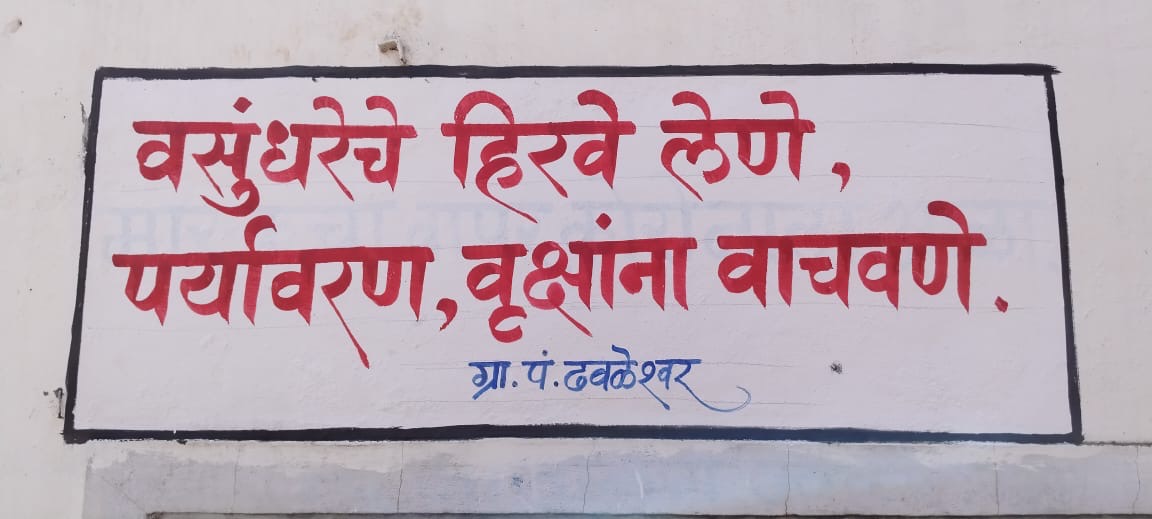 वसुंधरेचे हिरवे लेणे,
पर्यावरण, वृक्षांना वाचवणे.
ग्रा. पं. ढवळेश्वर